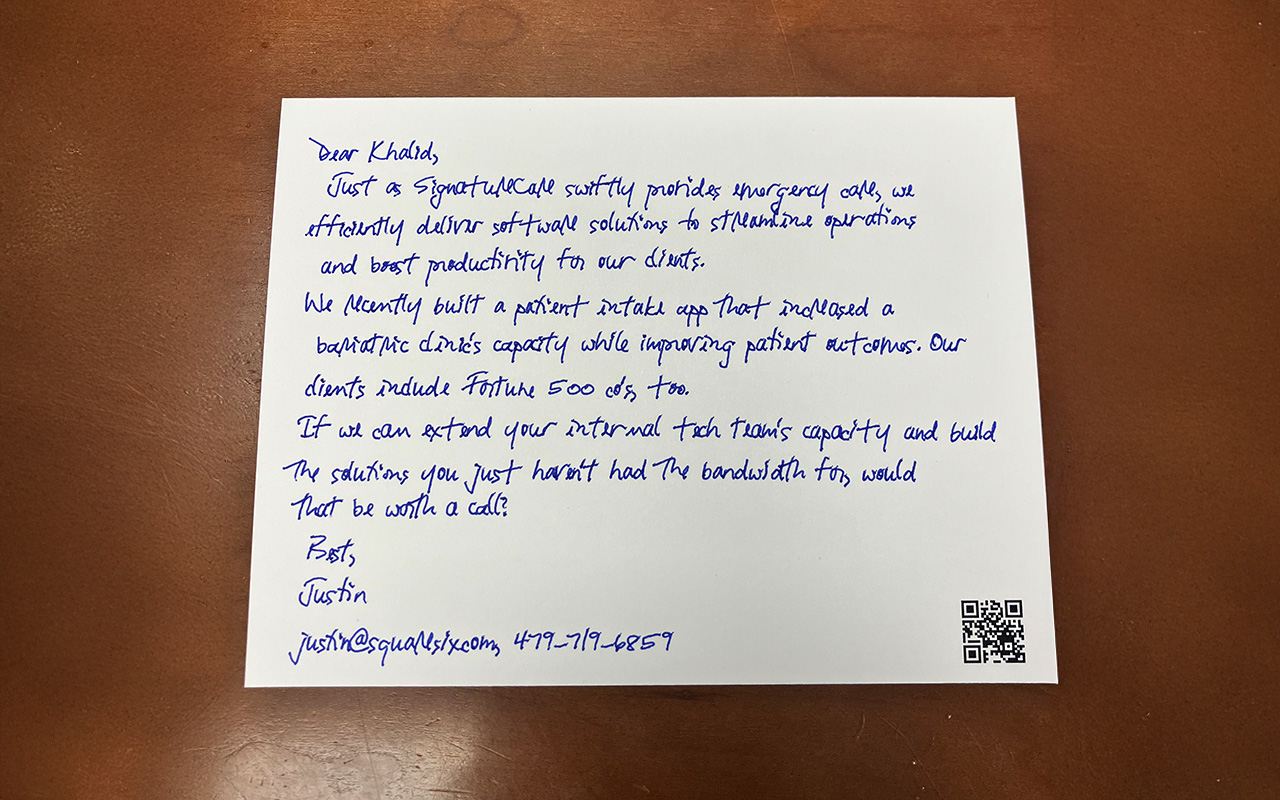 Dear Khalid,
Just as SignatureCare swiftly provides emergency care, we
efficiently deliver software solutions to streamline operations
and boost productivity for our clients.
We recently built a patient intake app that increased a
bariatric clinic's capacity while improving patient outcomes. Our
clients include Fortune 500 co's, too.
If we can extend your internal tech team's capacity and build
the solutions you just haven't had the bandwidth for, would
that be worth a call?
Best,
Justin
justin@squaresix.com, 479-719-6859